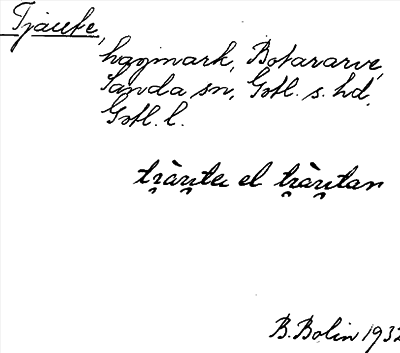 Tjaute,
hagmark, Botararve,
Sanda sn, Gotl. s. hd,
Gotl. l.
el
B. Bolin 1932